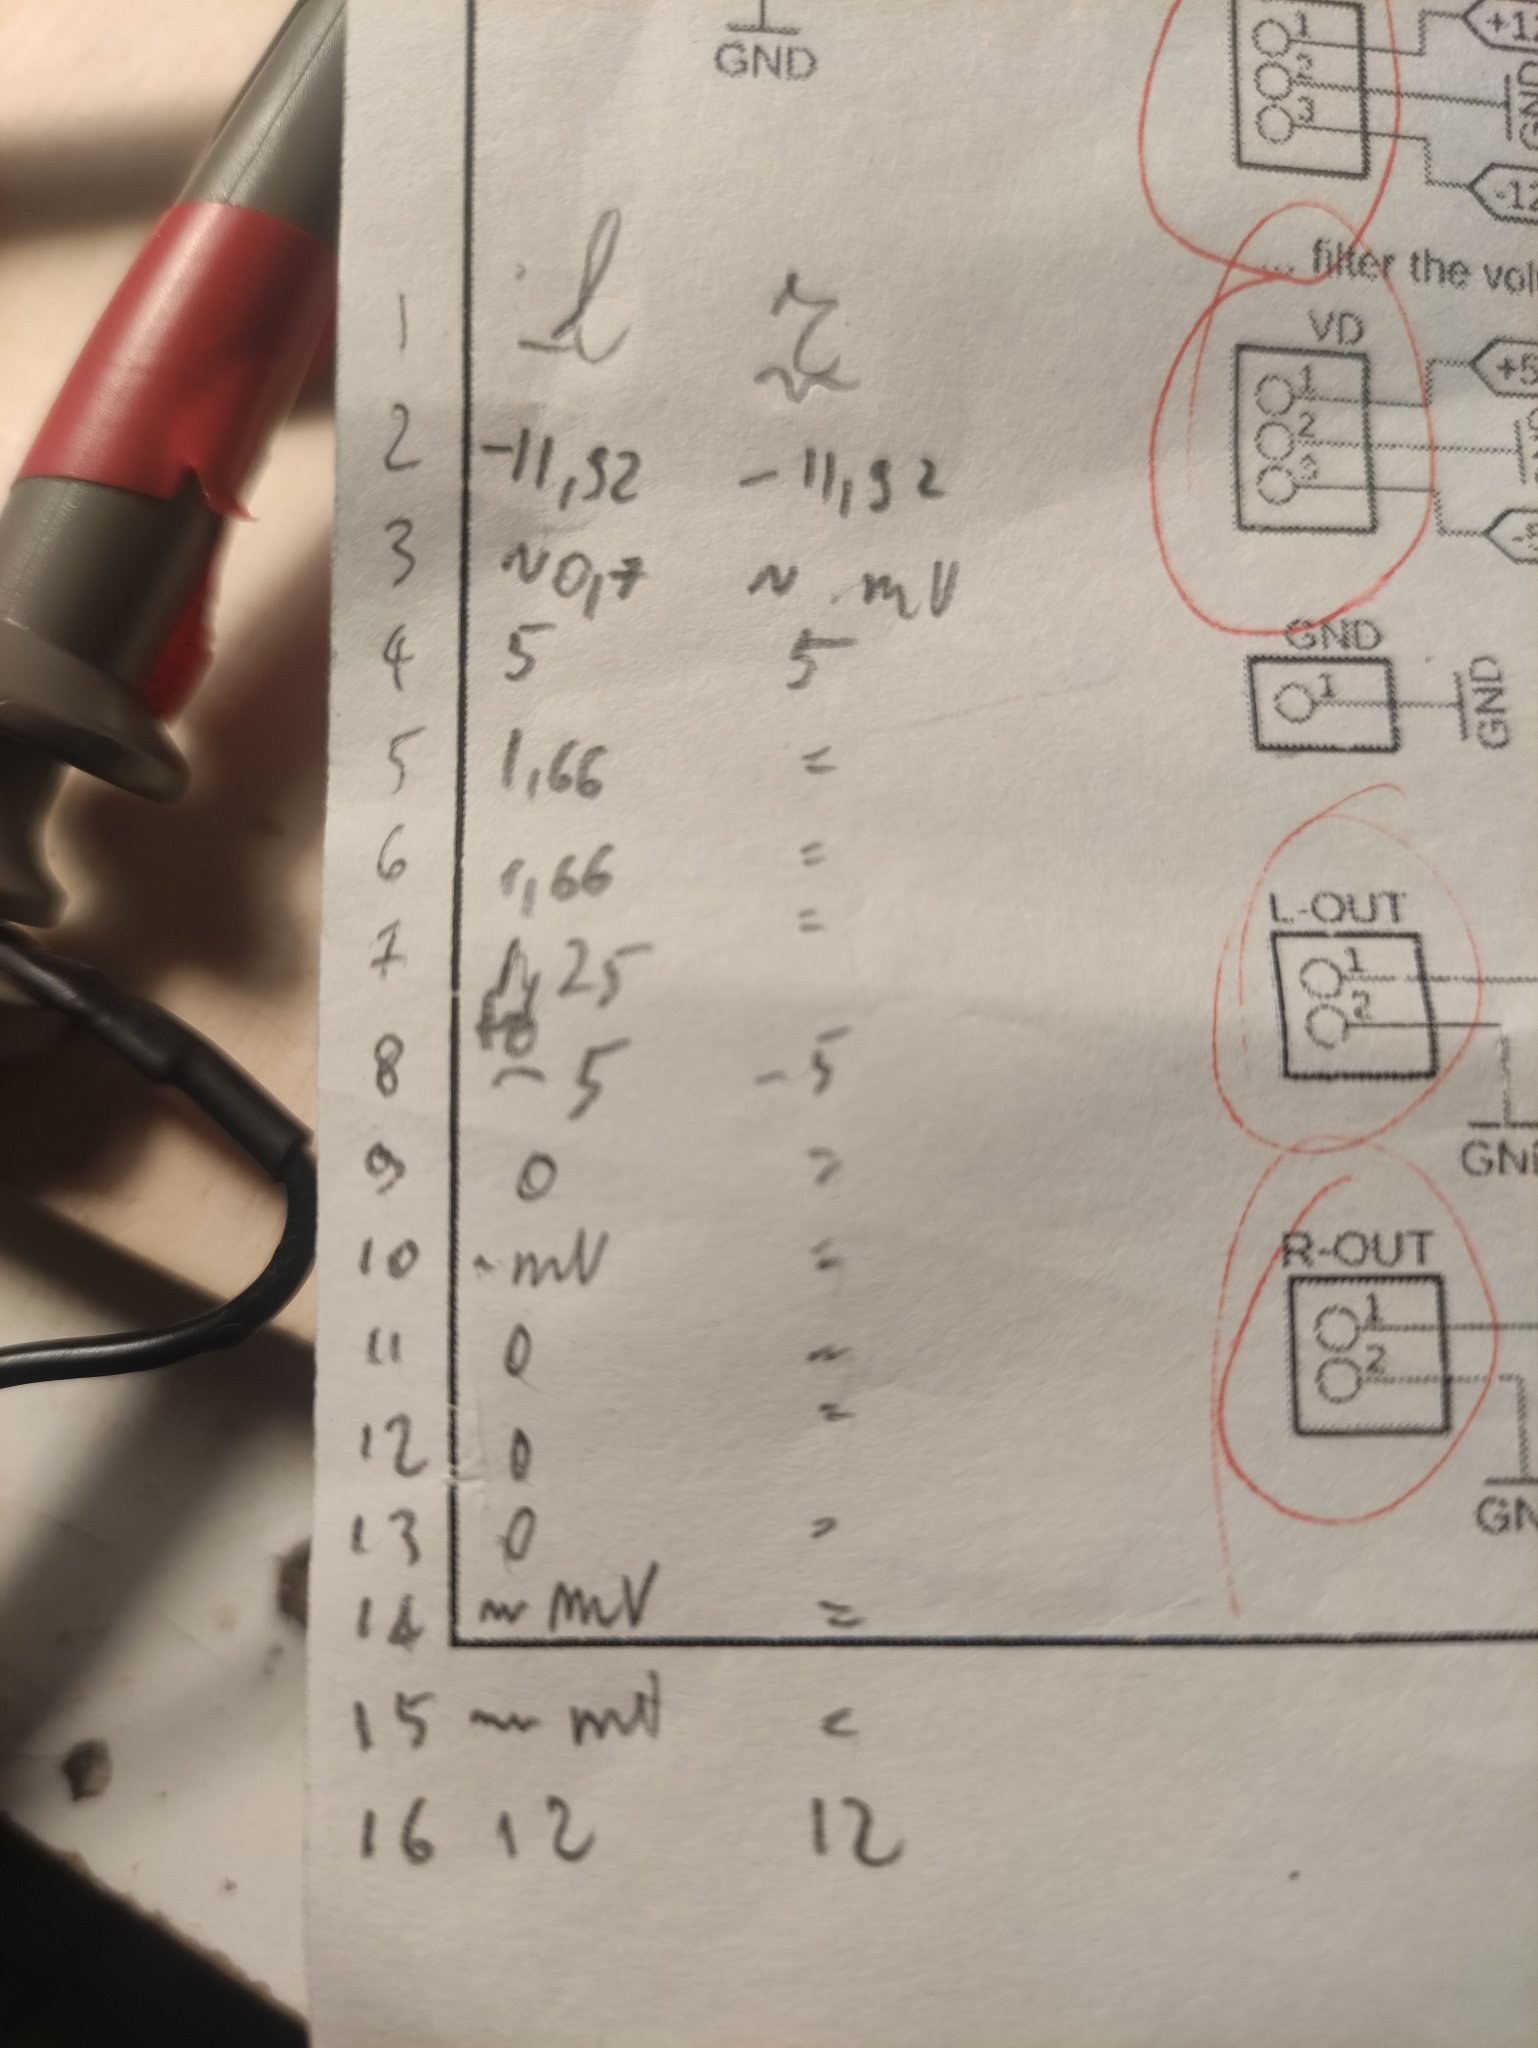 GND
1 +12
2
3 GND
-12
... filter the vol
VD
1 +5
2
3
GND
1 GND
L-OUT
1
2
GND
R-OUT
1
2
GN
l r
1
2 -11,92 -11,92
3 ~0,7 ~ mV
4 5 5
5 1,66 =
6 1,66 =
7 25 =
8 -5 -5
9 0 =
10 ~mV =
11 0 =
12 0 =
13 0 =
14 ~ mV =
15 ~ mV =
16 12 12